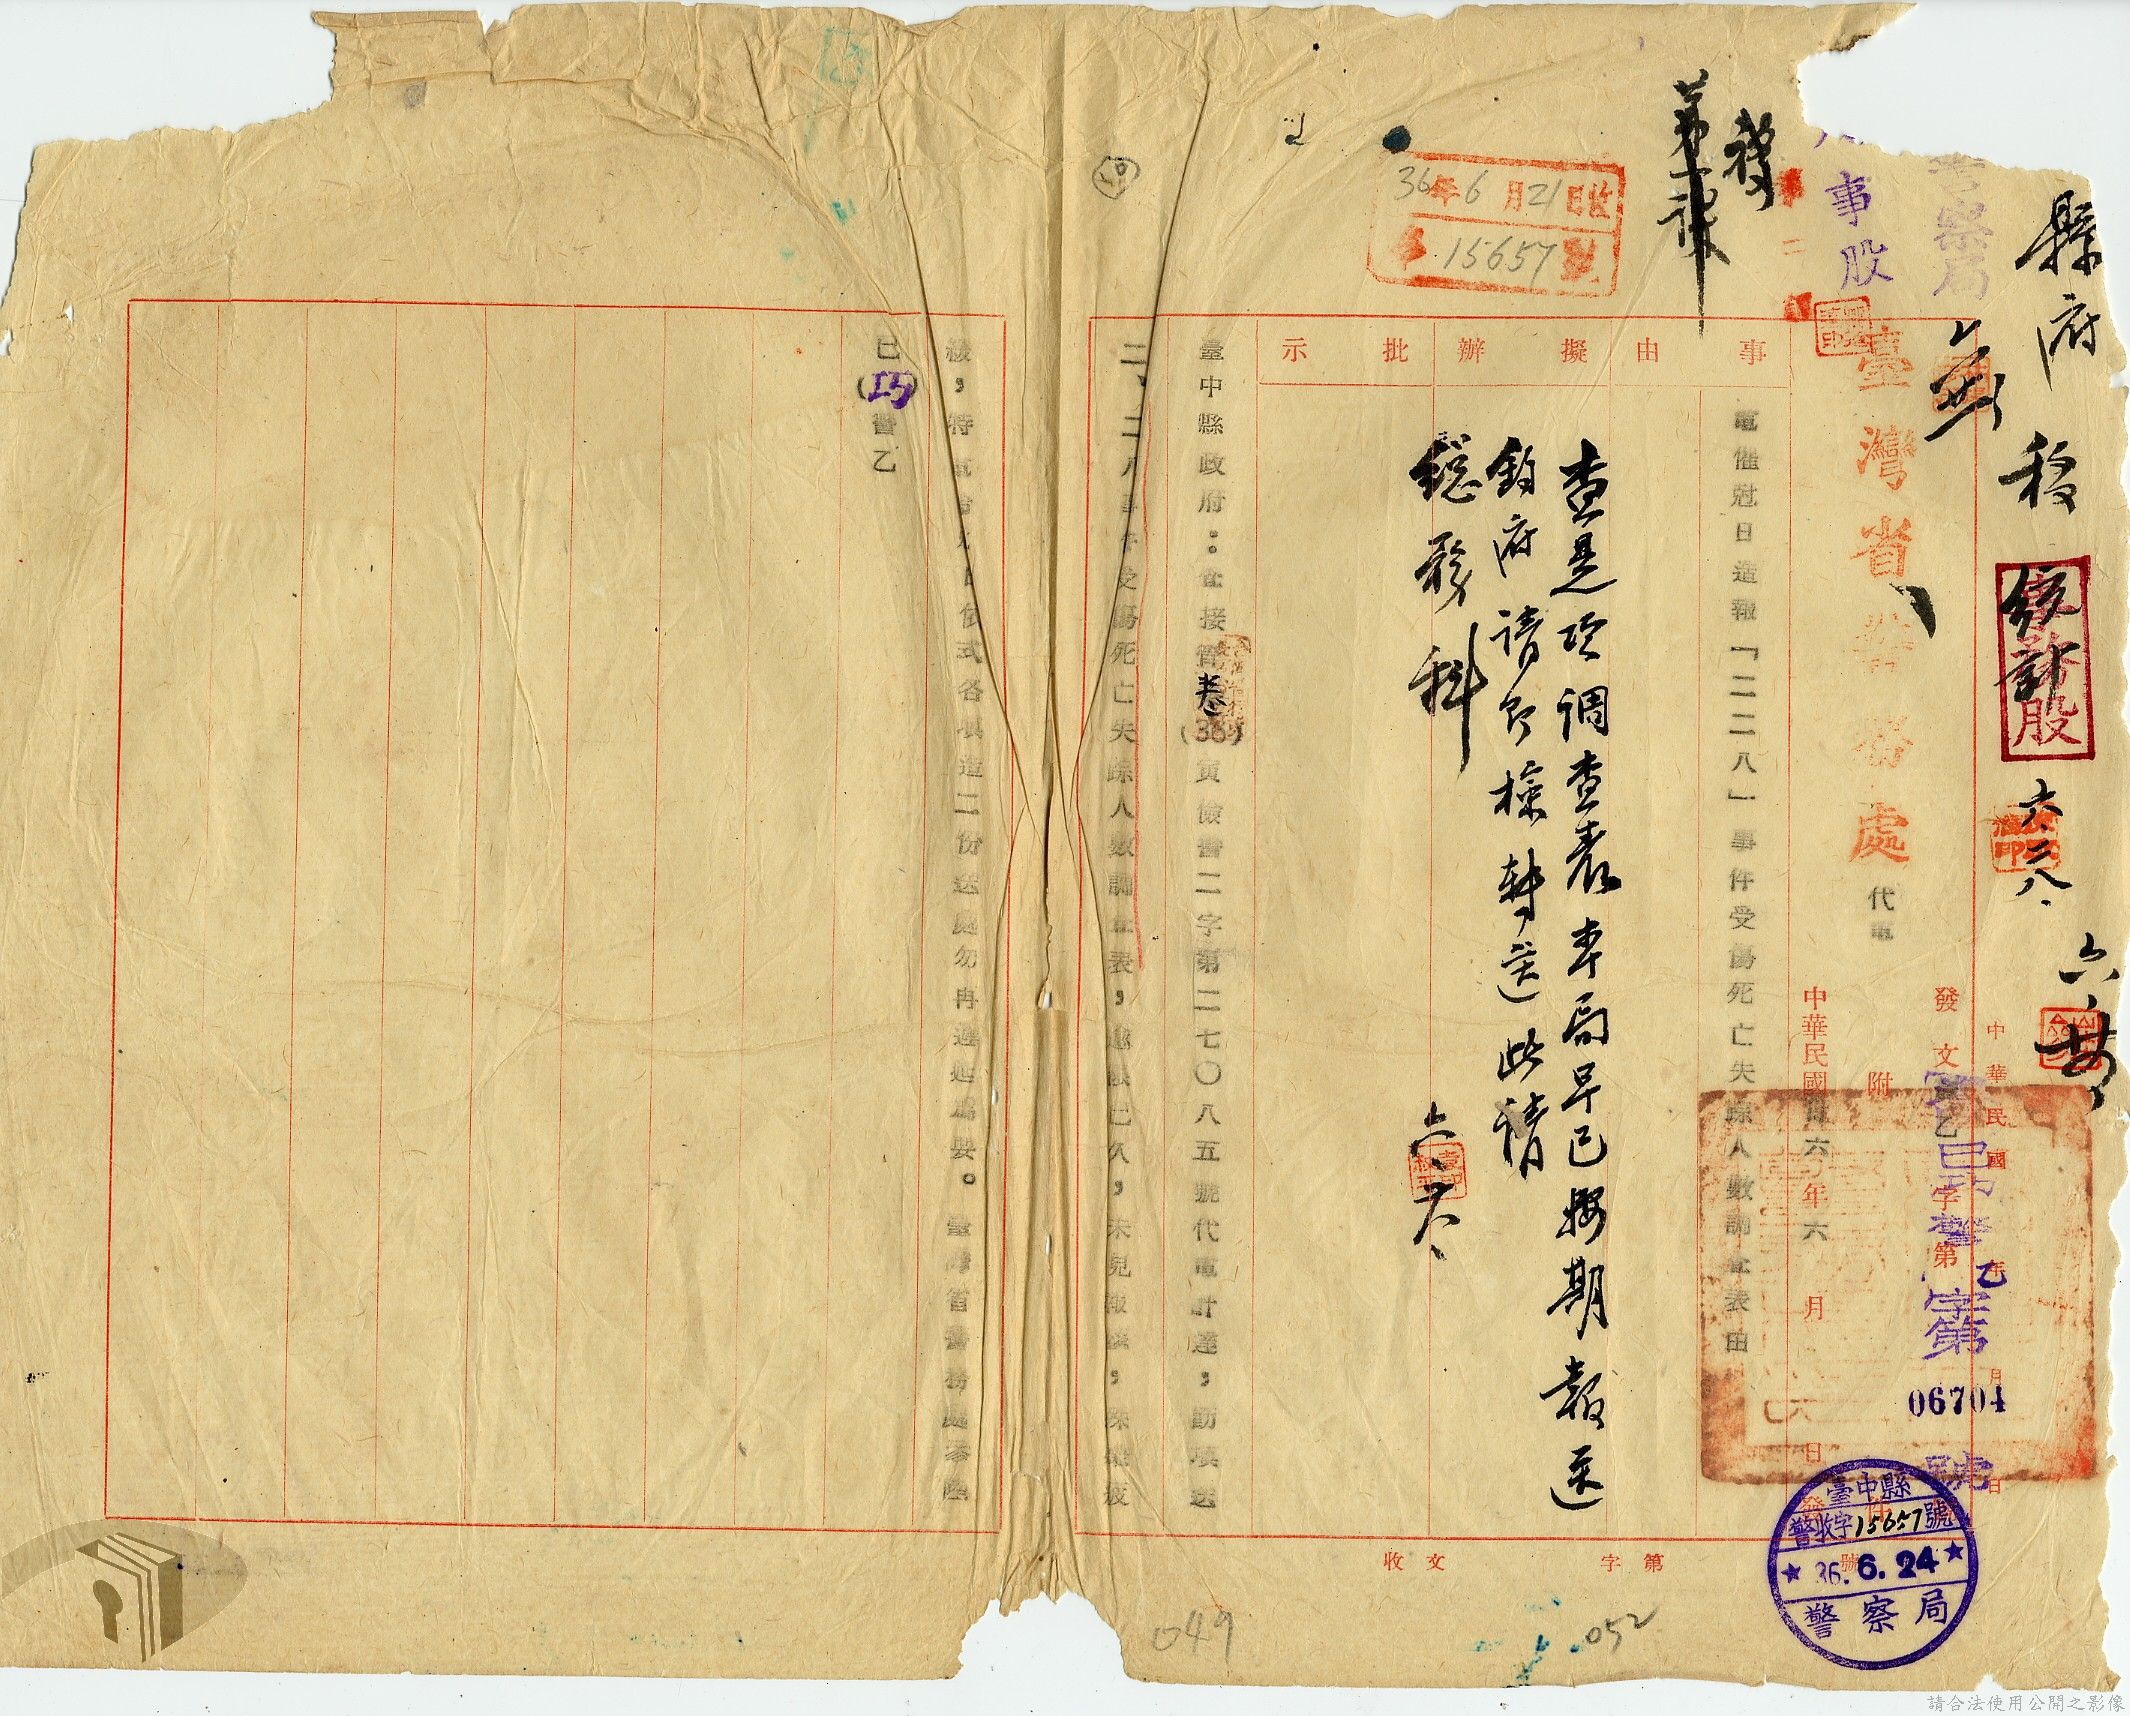 縣府移統計
六.二八.
警察局
人事股
第二
臺灣省警務處代電
發文
字第
號
巳巧警乙字第06704號
附
中華民國卅六年六月 日
中華民國 年 月 日
事由
擬辦
批示
電催尅日造報「二二八」事件受傷死亡失踪人數調查表由
查是項調查表本局早已按期報送
鈞府請予檢轉送此請
總務科
36年6月21日收
第15657號
臺中縣政府:案接管卷(36)寅儉警二字第二七〇八五號代電計達,前項送
二、二八事件受傷死亡失踪人數調查表,逾限已久,未見報來,殊屬疲
緩,特電仰尅日依式各填造二份送處勿再遲延為要。臺灣省警務處
巳(巧)警乙
臺中縣
警收字15657號
36.6.24
警察局
收文 字第 號
049
052
請合法使用公開之影像